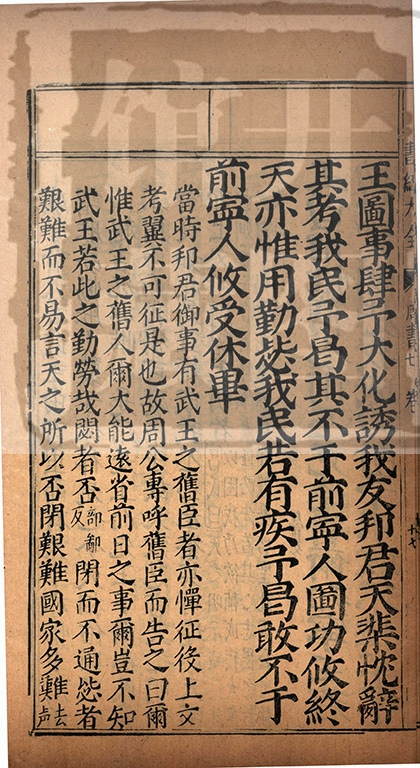 王圖事肆予大化誘我友邦君天棐忱辭
其考我民予曷其不于前寧人圖功攸終
天亦惟用勤毖我民若有疾予曷敢不于
前寧人攸受休畢
當時邦君御事有武王之舊臣者亦憚征役上文
考翼不可征是也故周公專呼舊臣而告之曰爾
惟武王之舊人爾大能遠省前日之事爾豈不知
武王若此之勤勞哉閟者否部鄙反閉而不通毖者
艱難而不易言天之所以否閉艱難國家多難去声